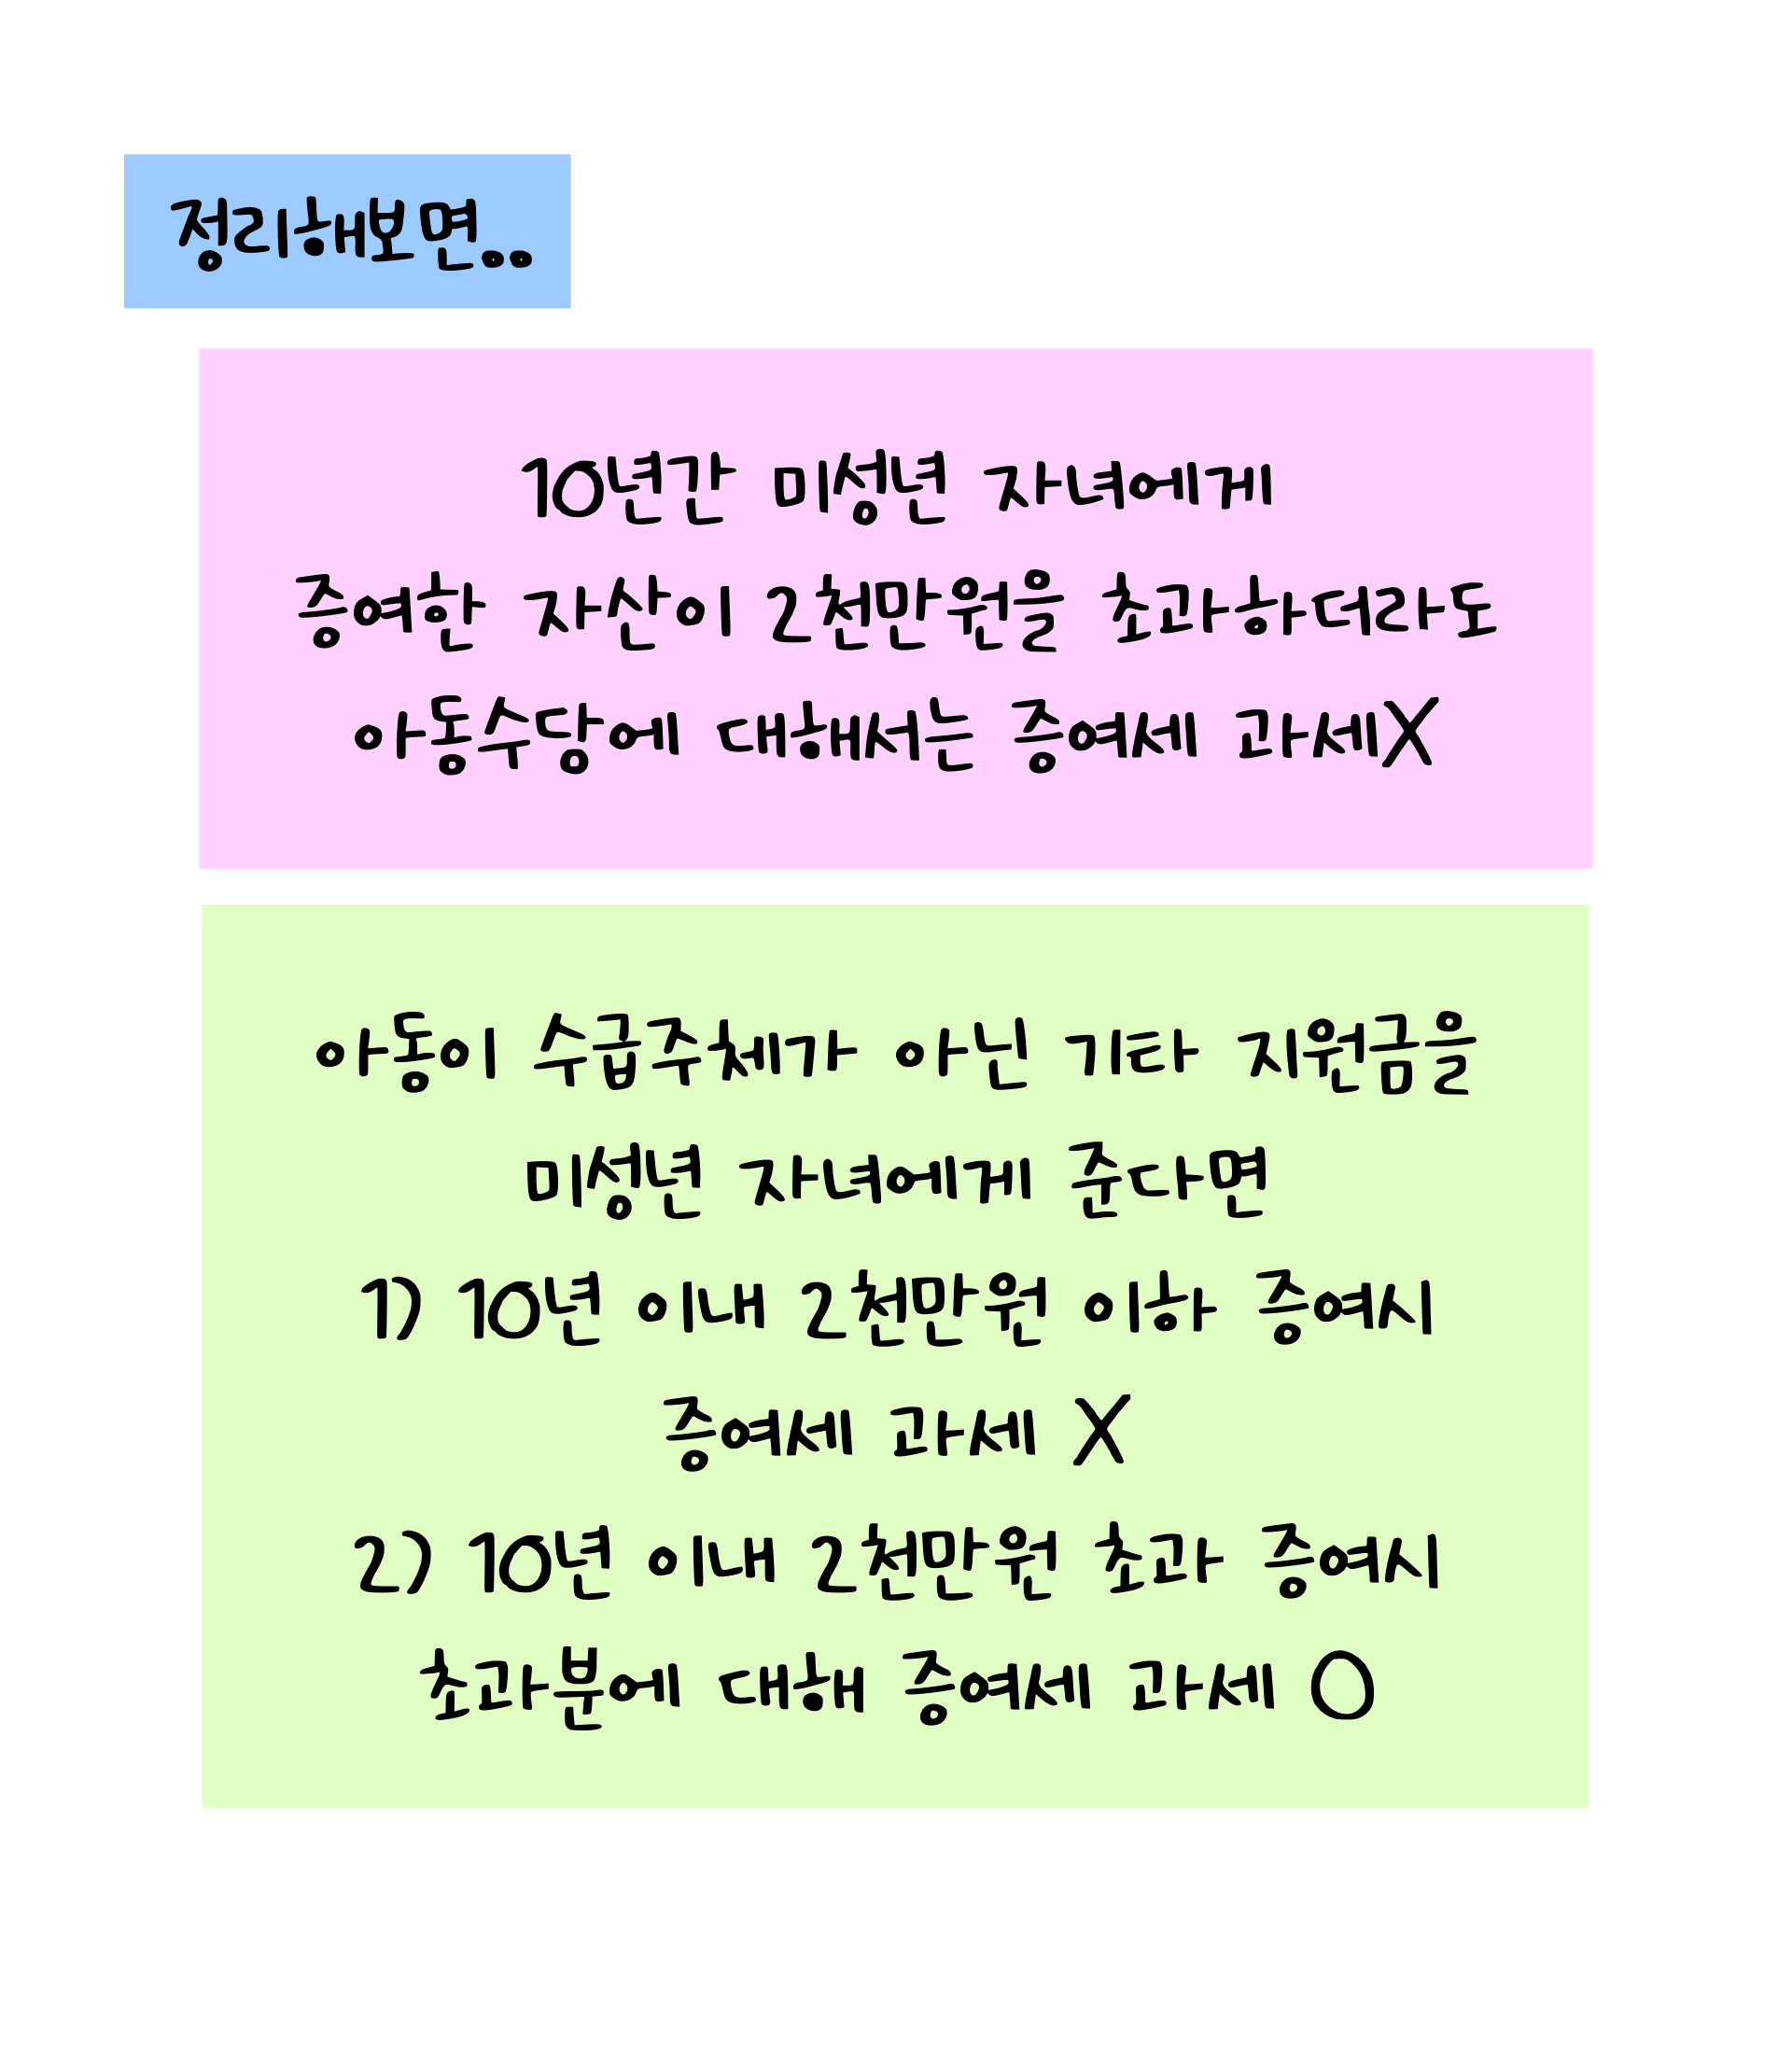 정리해보면..
10년간 미성년 자녀에게
증여한 자산이 2천만원을 초과하더라도
아동수당에 대해서는 증여세 과세X
아동이 수급주체가 아닌 기타 지원금을
미성년 자녀에게 준다면
1) 10년 이내 2천만원 이하 증여시
증여세 과세 X
2) 10년 이내 2천만원 초과 증여시
초과분에 대해 증여세 과세 O